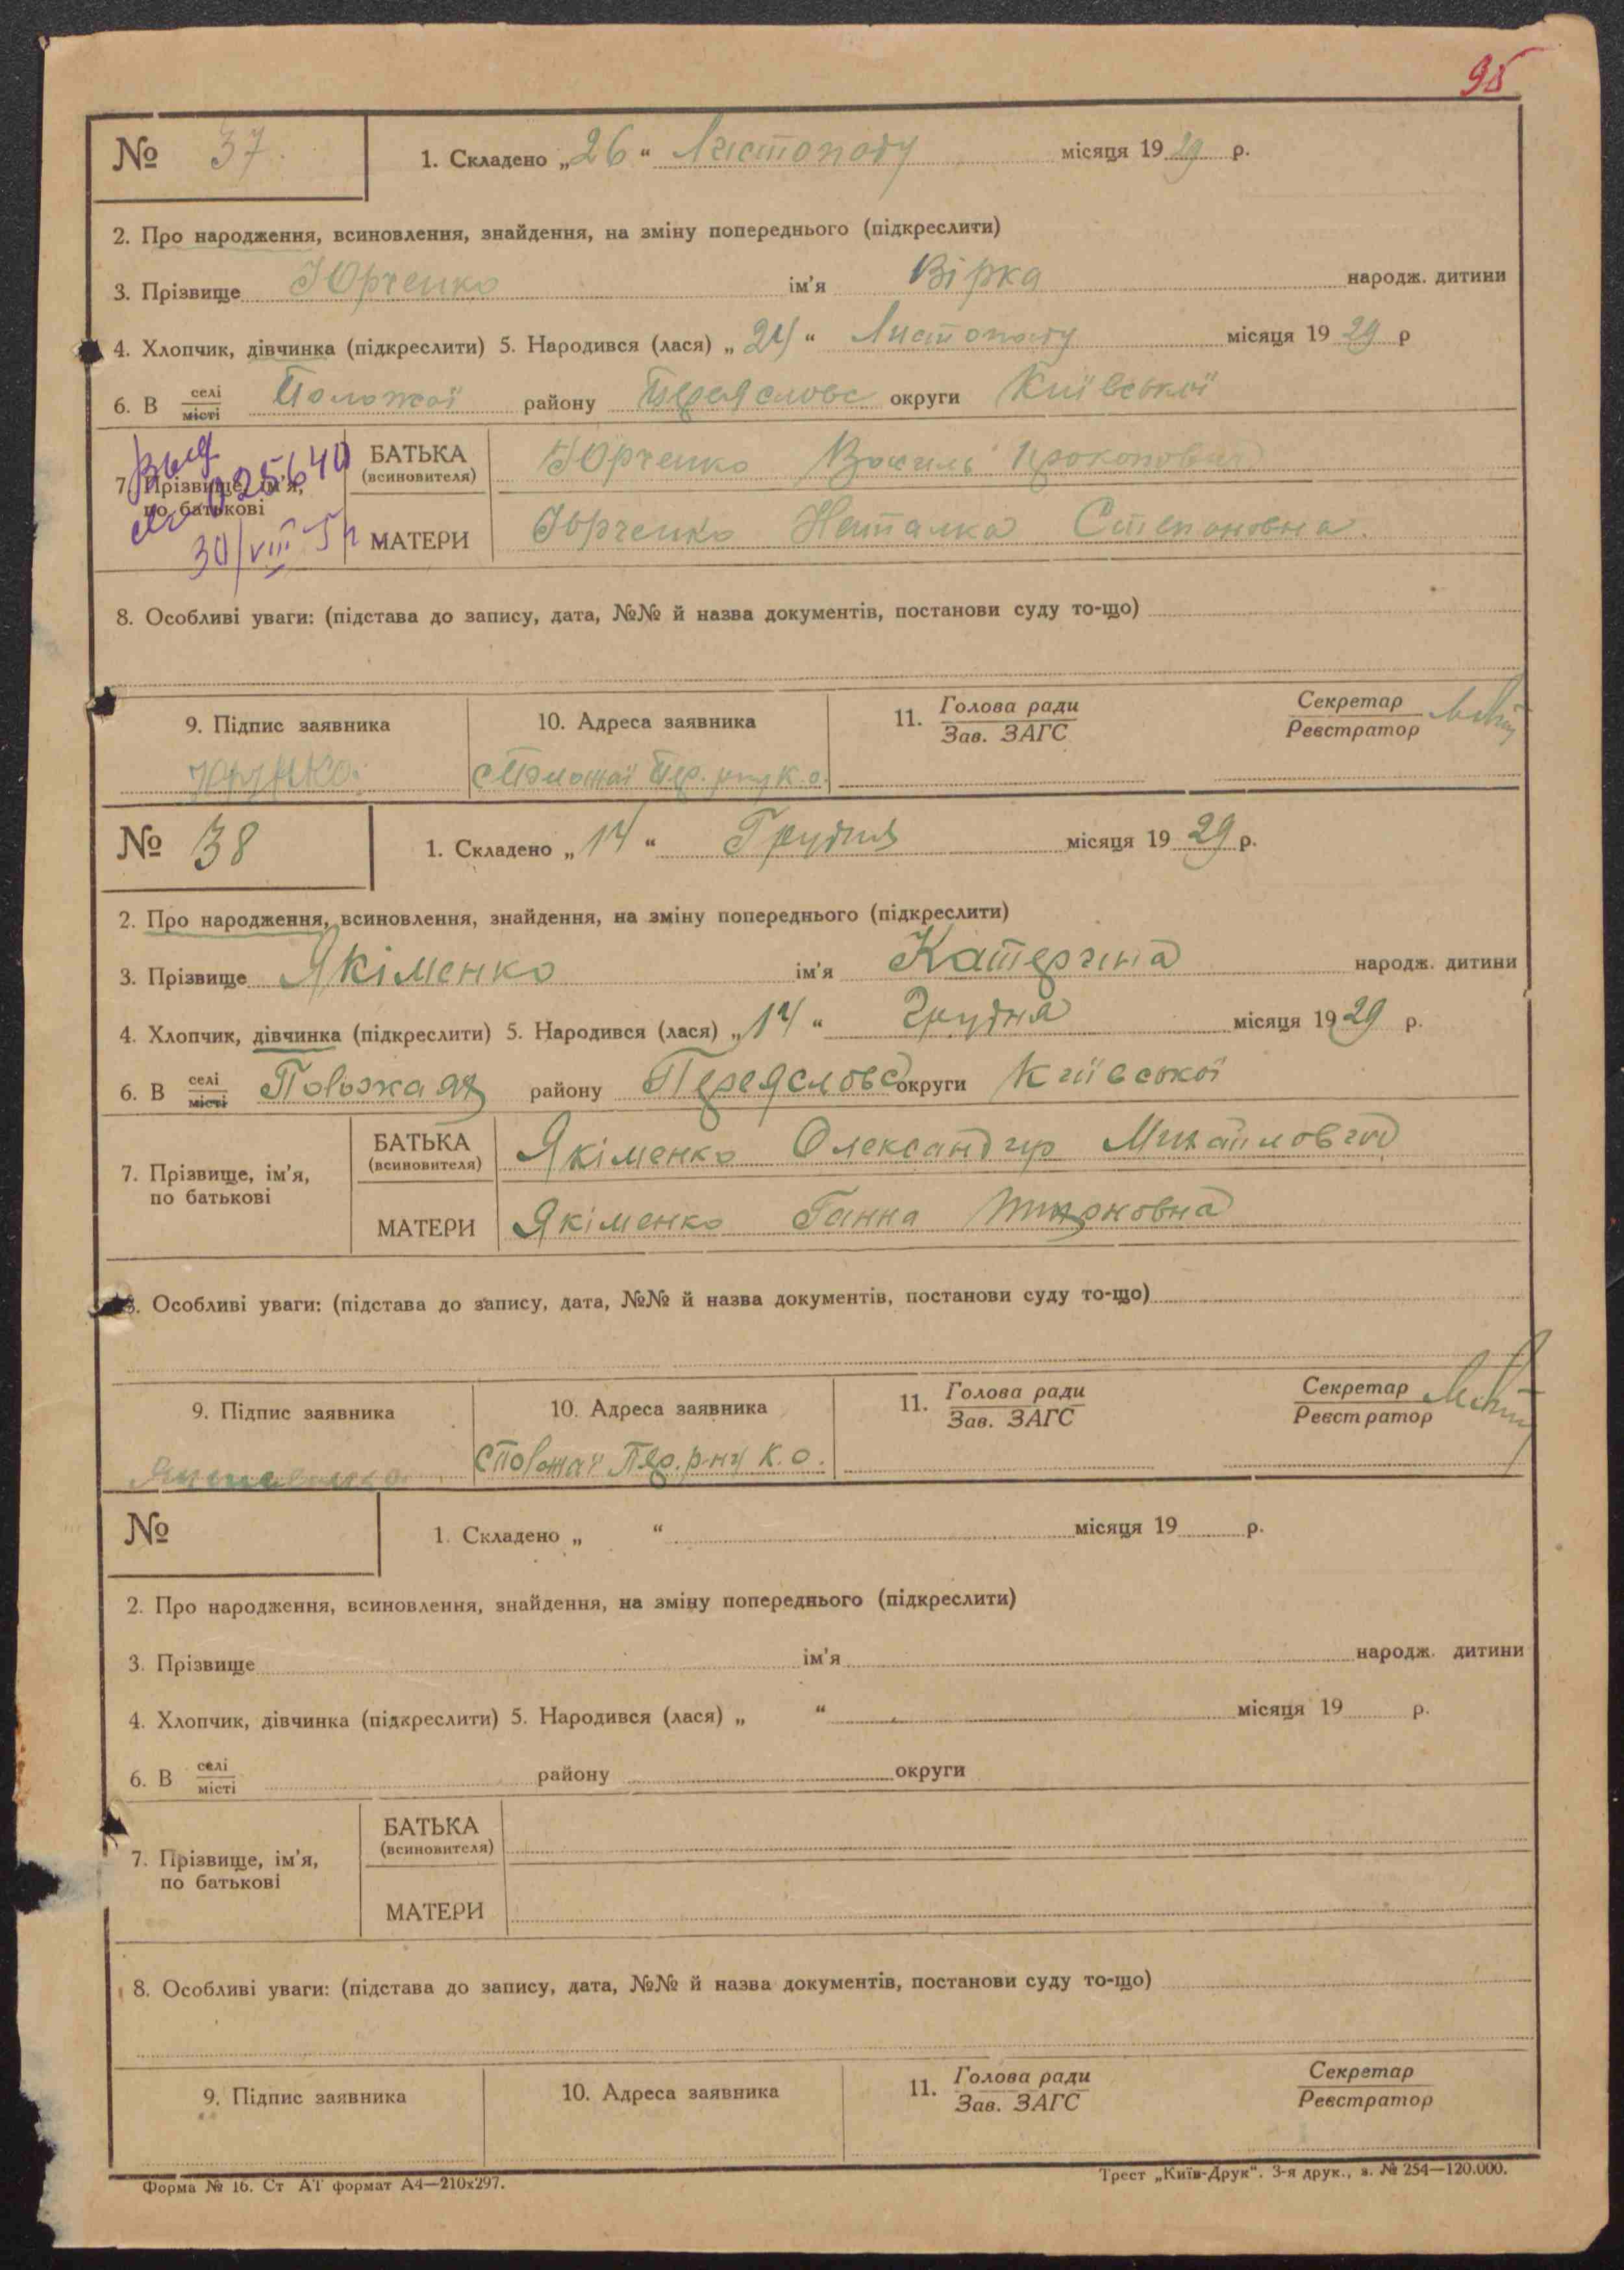 95
№ 37. 1. Складено „26“ Листопаду місяця 1929 р.
2. Про народження, всиновлення, знайдення, на зміну попереднього (підкреслити)
3. Прізвище Юрченко ім'я Вірка народж. дитини
4. Хлопчик, дівчинка (підкреслити) 5. Народився (лася) „24“ Листопаду місяця 1929 р
6. В селі місті Положаї району Переясловс округи Київської
Выд
025640
30/VIII
7. Прізвище, ім'я,
по батькові
БАТЬКА
(всиновителя)
Юрченко Василь Прокопович
МАТЕРИ Юрченко Наталка Степановна.
8. Особливі уваги: (підстава до запису, дата, №№ й назва документів, постанови суду то-що)
9. Підпис заявника 10. Адреса заявника 11. Голова ради Секретар
Зав. ЗАГС Реєстратор
с Положаї Пер. к.о.
№ 38 1. Складено „14“ Грудня місяця 1929 р.
2. Про народження, всиновлення, знайдення, на зміну попереднього (підкреслити)
3. Прізвище Якіменко ім'я Катерина народж. дитини
4. Хлопчик, дівчинка (підкреслити) 5. Народився (лася) „14“ Грудня місяця 1929 р.
6. В селі місті району Переясловс округи Київської
7. Прізвище, ім'я,
по батькові
БАТЬКА
(всиновителя)
Якіменко Олександир Михайлович
МАТЕРИ Якіменко Ганна
8. Особливі уваги: (підстава до запису, дата, №№ й назва документів, постанови суду то-що)
9. Підпис заявника 10. Адреса заявника 11. Голова ради Секретар
Зав. ЗАГС Реєстратор
с Положаї Пер. р-ну к.о.
№ 1. Складено „ “ місяця 19 р.
2. Про народження, всиновлення, знайдення, на зміну попереднього (підкреслити)
3. Прізвище ім'я народж. дитини
4. Хлопчик, дівчинка (підкреслити) 5. Народився (лася) „ “ місяця 19 р.
6. В селі місті району округи
7. Прізвище, ім'я,
по батькові
БАТЬКА
(всиновителя)
МАТЕРИ
8. Особливі уваги: (підстава до запису, дата, №№ й назва документів, постанови суду то-що)
9. Підпис заявника 10. Адреса заявника 11. Голова ради Секретар
Зав. ЗАГС Реєстратор
Форма № 16. Ст АТ формат А4—210x297. Трест „Київ-Друк“. 3-я друк., з. № 254—120.000.